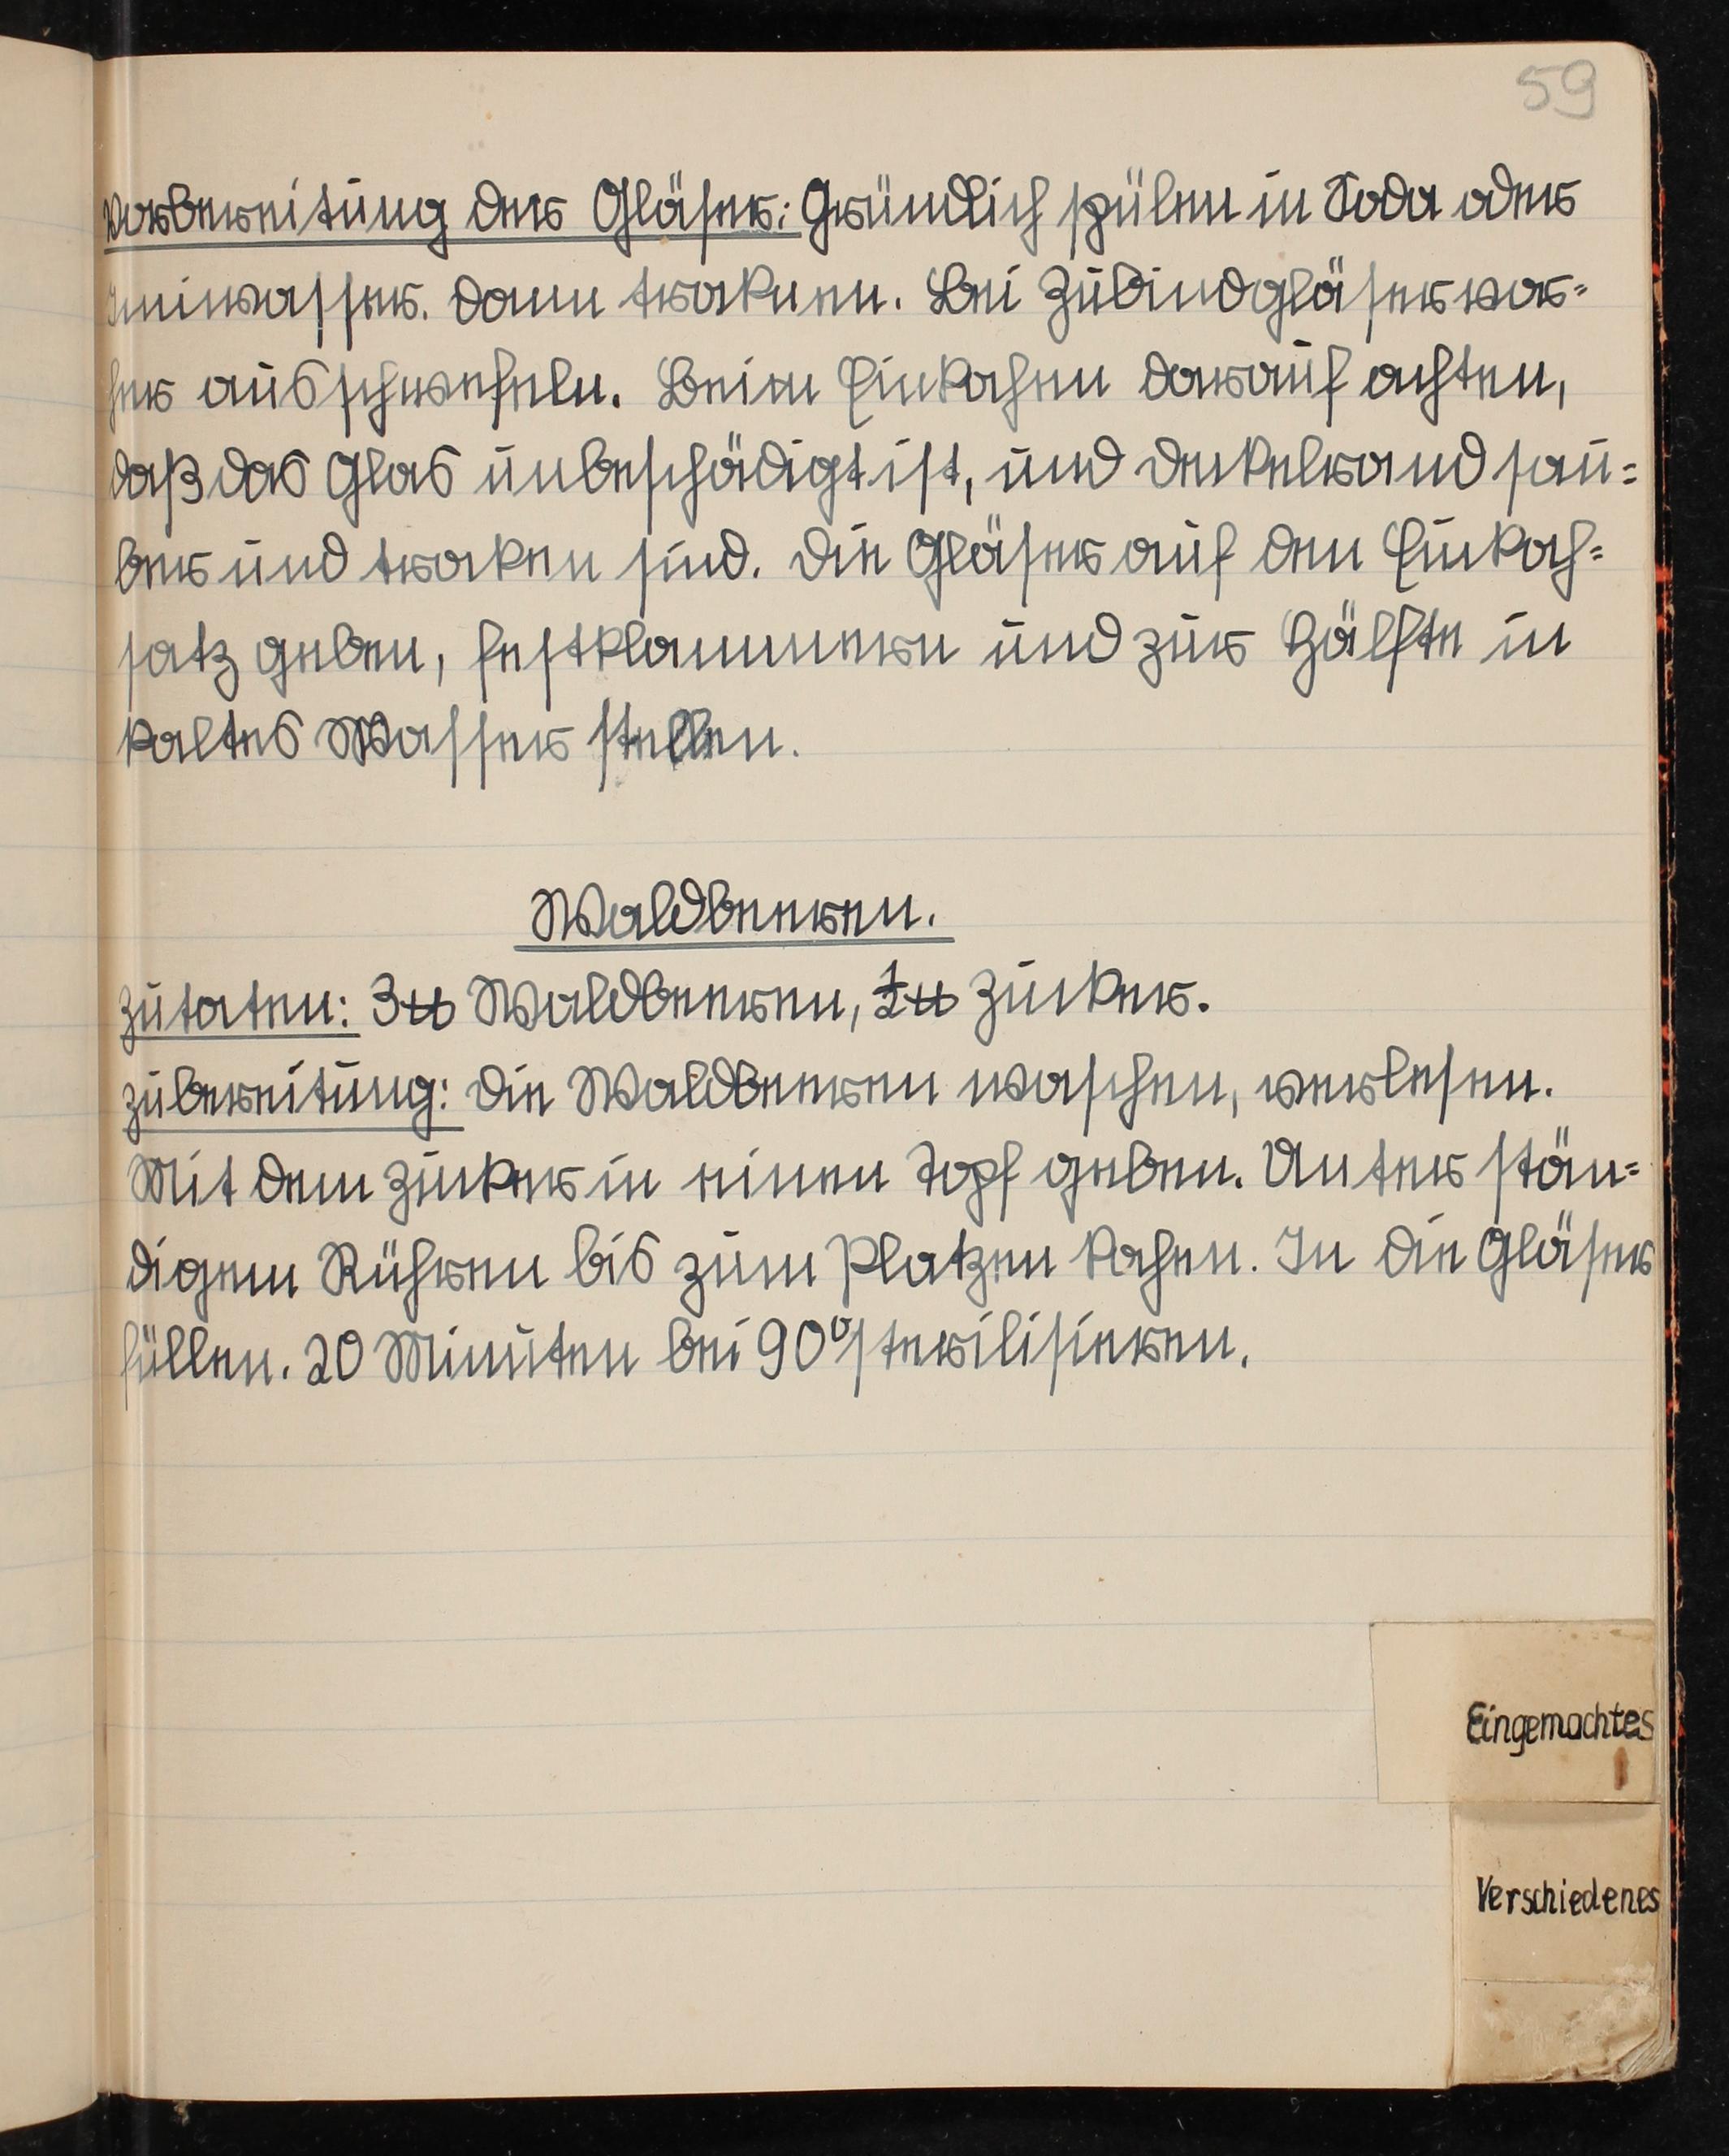 59
Vorbereitung der Gläser: Gründlich spülen in Soda oder
Imiwasser. Dann troknen. Bei Zubindgläser vor=
her ausschwefeln. Beim Einkochen darauf achten,
daß das Glas unbeschädigt ist, und Deckelrand sau=
ber und trocken sind. Die Gläser auf den Einkoch=
satz geben, festklammern und zur Hälfte in
kaltes Wasser stellen.
Waldbeeren.
Zutaten: 3 ℔ Waldbeeren, ½ ℔ Zucker.
Zubereitung: Die Waldbeeren waschen, verlesen.
Mit dem Zucker in einen Topf geben. Unter stän=
digem Rühren bis zum Platzen kochen. In die Gläser
füllen. 20 Minuten bei 90° sterilisieren.
Eingemachtes
Verschiedenes